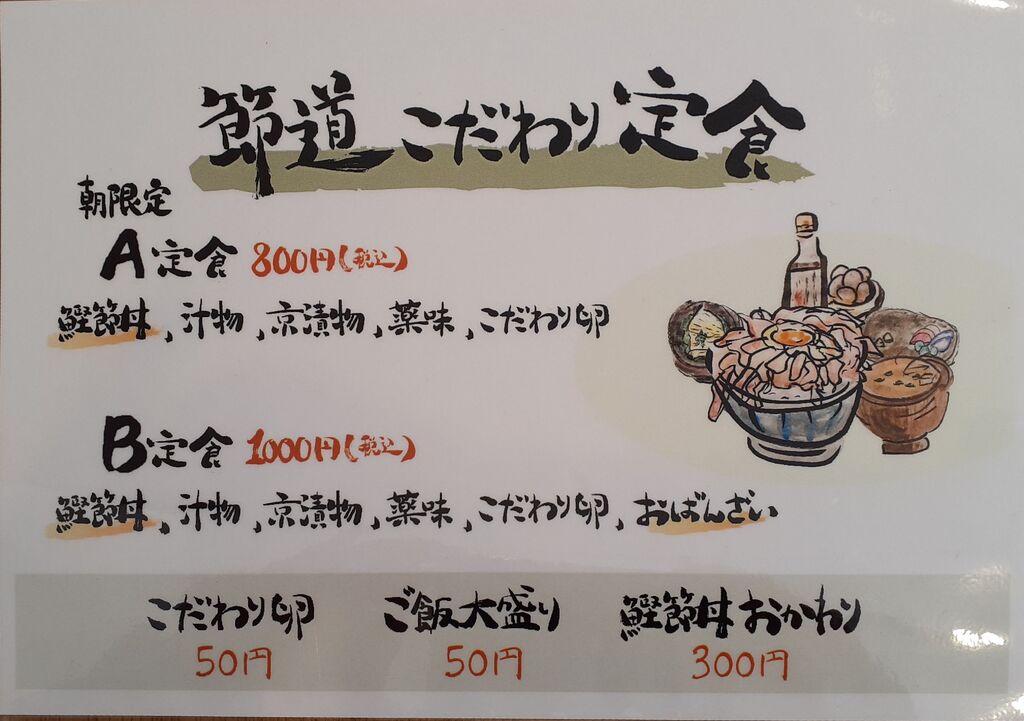 節道こだわり定食
朝限定
A定食 800円(税込)
鰹節丼,汁物,京漬物,薬味,こだわり卵
B定食 1000円(税込)
鰹節丼,汁物,京漬物,薬味,こだわり卵,おばんざい
こだわり卵 ご飯大盛り 鰹節丼おかわり
50円 50円 300円